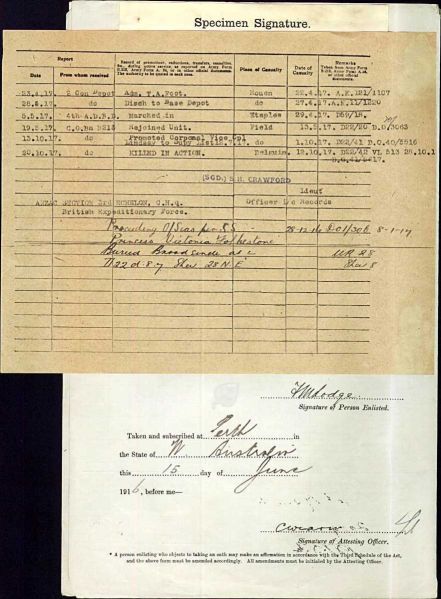 Specimen Signature.
Report
Date
From whom received
Record of promotions, reductions, transfers, casualties,
&c., during active service, as reported on Army Form
B.213, Army Form A.36, or in other official documents.
The authority to be quoted in each case.
Place of Casualty
Date of
Casualty
Remarks
taken from Army Form
B.213, Army Form A.36,
or other official
documents.
23.4.17. 2 Con Depot Adm. T.A. Post. Rouen 22.4.17. A.K. 121/1107
28.4.17. do Disch to Base Depot do 27.4.17. A.K. 11/1220
5.5.17. 4th A.D.B.D. Marched in Etaples 29.4.17 D59/18.
19.5.17. C.O. Bn B213 Rejoined Unit. Field 13.5.17. D22/20 D.O/3063
13.10.17. do Promoted Corporal Vice Cpl
do 1.10.17. D22/41 D.O.40/3516
20.10.17. do KILLED IN ACTION. Belgium. 12.10.17. D22/42 VL 513 28.10.1
(SGD.) H. CRAWFORD
Lieut
ANZAC SECTION 3rd ECHELON, G.H.Q. Officer i/c Records
British Expeditionary Force.
Proceeding O/Seas per S.S. 28-12-16 DO1/306 8-1-17
Princess Victoria Folkestone
Buried Broodseinde
D 22 d. 8.7 Sheet 28 N.E.
Signature of Person Enlisted.
Taken and subscribed at Perth in
the State of W Australia
this 15 day of June
1916, before me—
Signature of Attesting Officer.
* A person enlisting who objects to taking an oath may make an affirmation in accordance with the Third Schedule of the Act,
and the above form must be amended accordingly. All amendments must be initialed by the Attesting Officer.